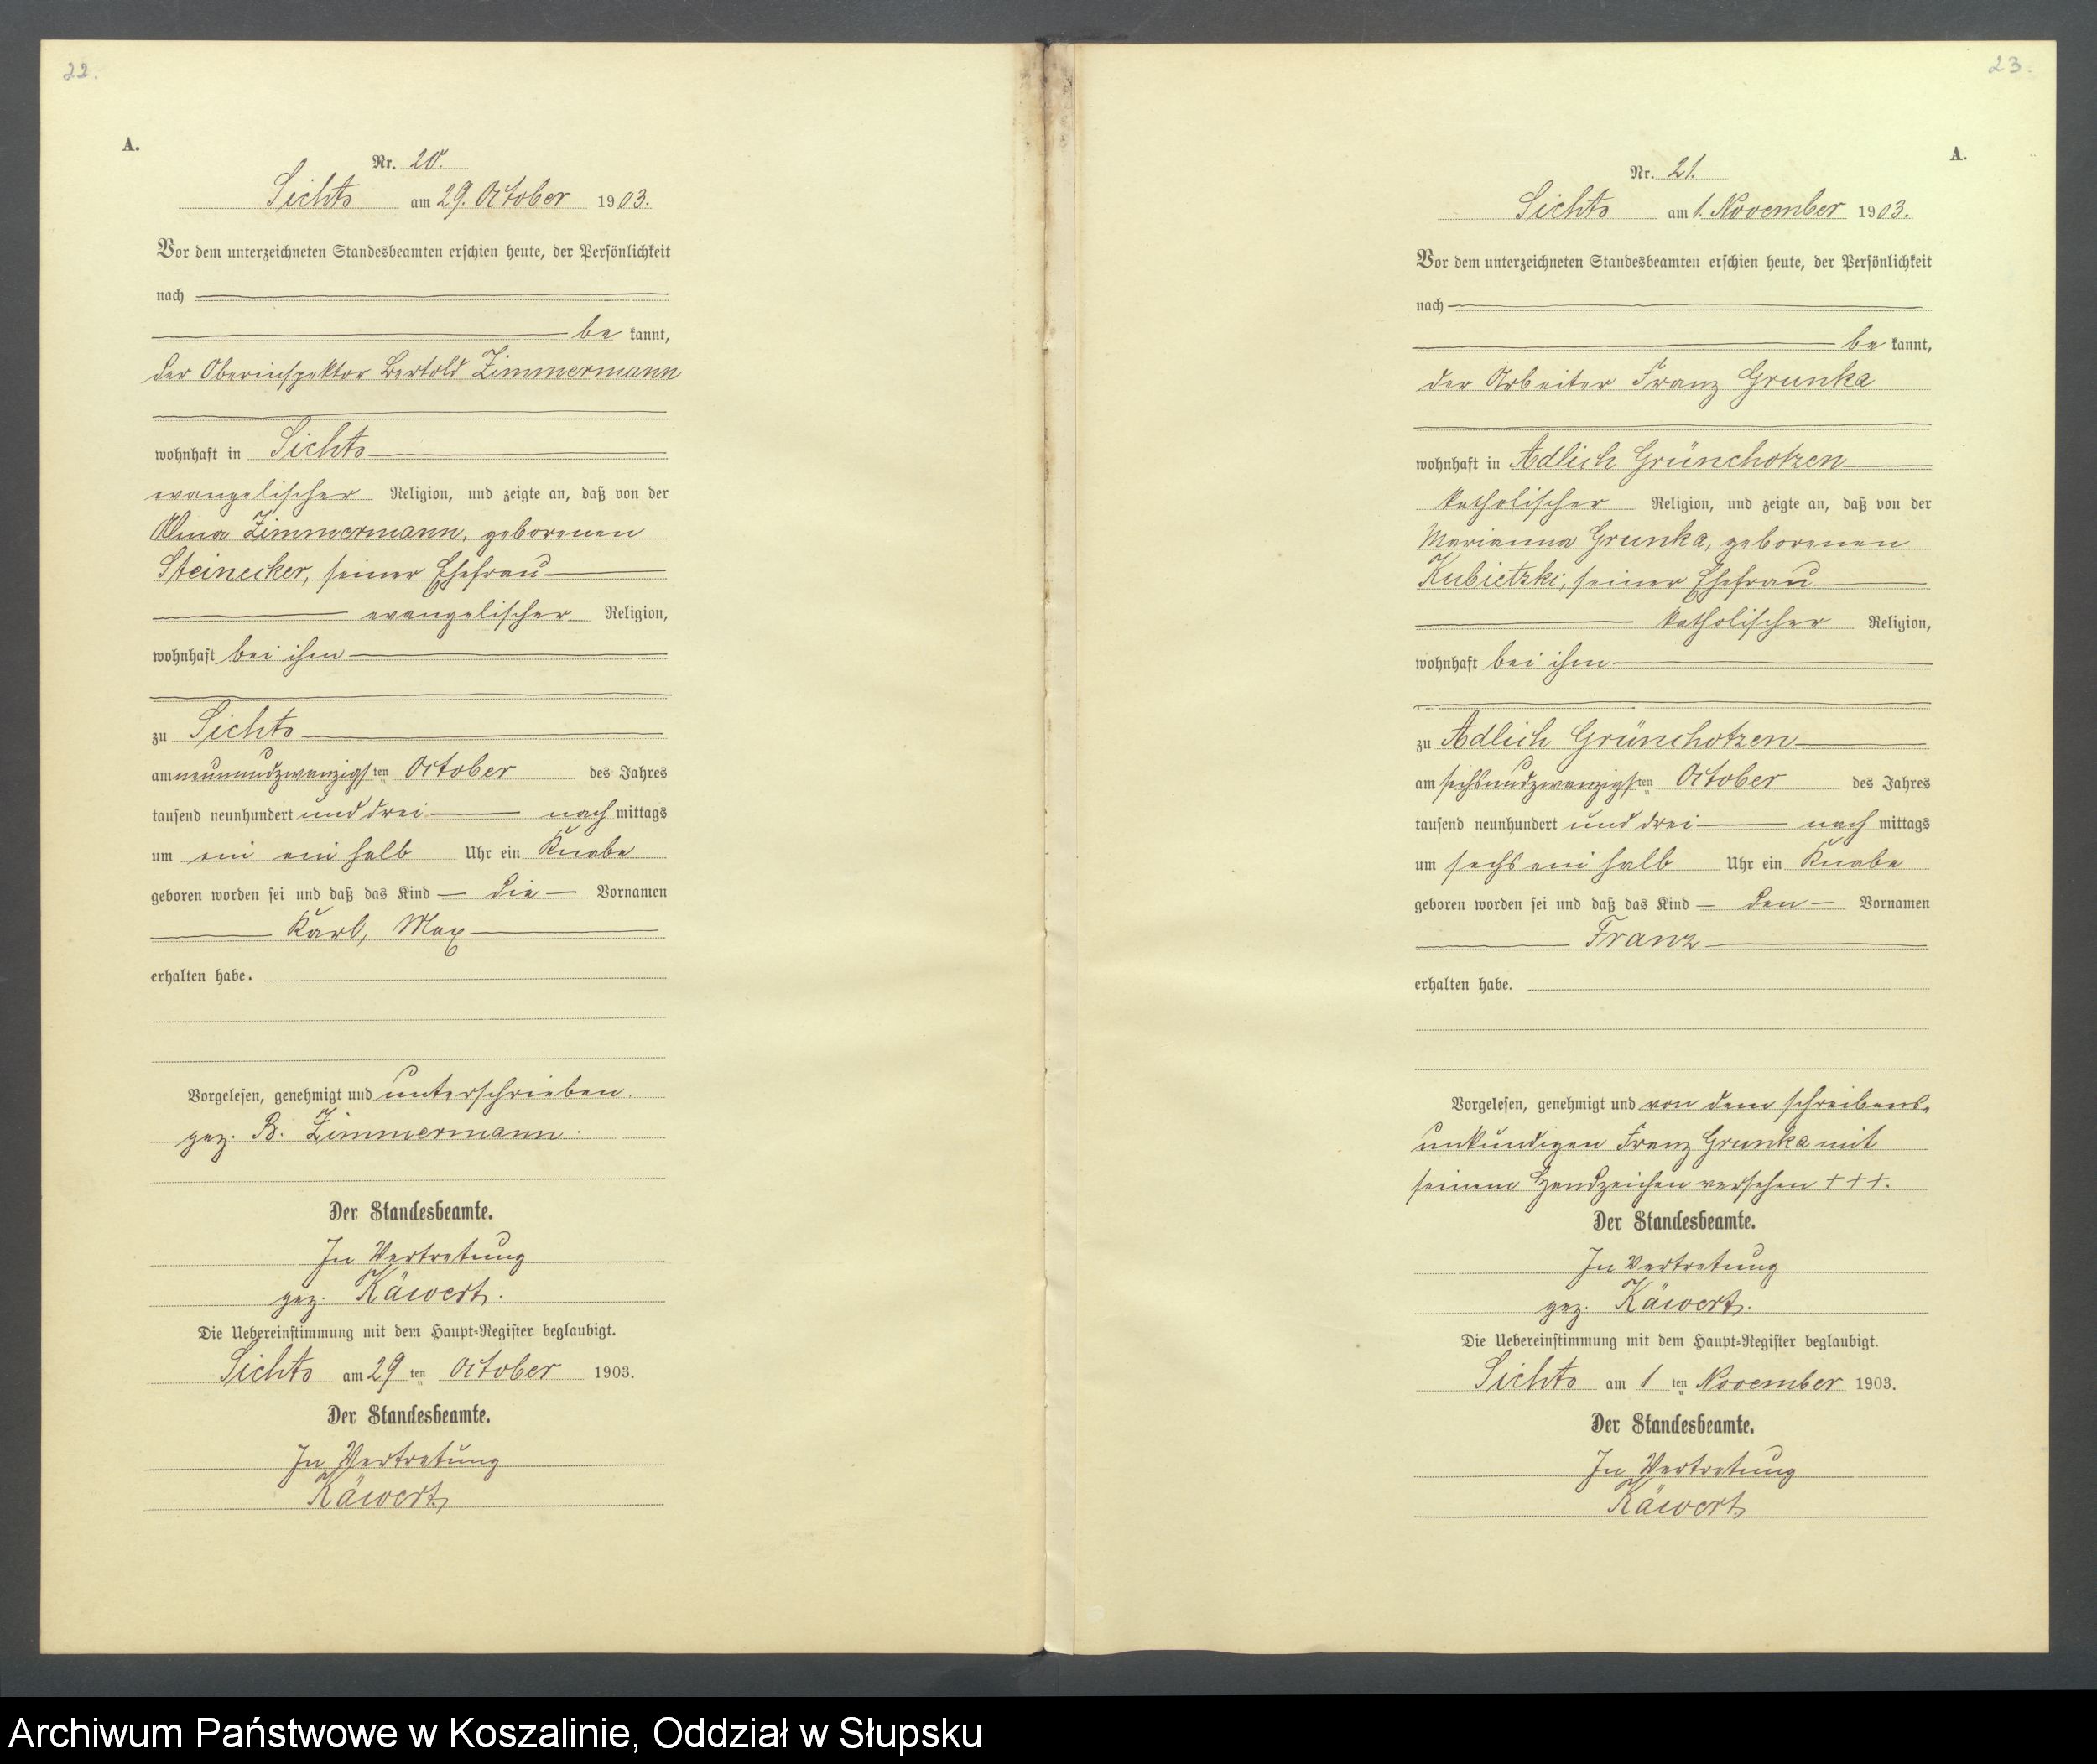 22.
A.
Nr. 20.
Sichts am 29. October 1903.
Vor dem unterzeichneten Standesbeamten erschien heute, der Persönlichkeit
nach
be kannt,
der Oberinspektor Bertold Zimmermann
wohnhaft in Sichts
evangelischer Religion, und zeigte an, daß von der
Alma Zimmermann, geborenen
Steinecker, seiner Ehefrau
evangelischer Religion,
wohnhaft bei ihm
zu Sichts
am neunundzwanzigsten October des Jahres
tausend neunhundert und drei nach mittags
um ein ein halb Uhr ein Knabe
geboren worden sei und daß das Kind die Vornamen
Karl, Max
erhalten habe.
Vorgelesen, genehmigt und unterschrieben.
gez. B. Zimmermann.
Der Standesbeamte.
In Vertretung
gez. Käwert.
Die Uebereinstimmung mit dem Haupt-Register beglaubigt.
Sichts am 29 ten October 1903.
Der Standesbeamte.
In Vertretung
Käwert
23.
A.
Nr. 21.
Sichts am 1. November 1903.
Vor dem unterzeichneten Standesbeamten erschien heute, der Persönlichkeit
nach
be kannt,
der Arbeiter Franz Grunka
wohnhaft in Adlich Grünchotzen
katholischer Religion, und zeigte an, daß von der
Marianna Grunka, geborenen
Kubietzki, seiner Ehefrau
katholischer Religion,
wohnhaft bei ihm
zu Adlich Grünchotzen
am sechsundzwanzigsten October des Jahres
tausend neunhundert und drei nach mittags
um sechs ein halb Uhr ein Knabe
geboren worden sei und daß das Kind den Vornamen
Franz
erhalten habe.
Vorgelesen, genehmigt und von dem schreibens-
unkundigen Franz Grunka mit
seinem Handzeichen versehen +++.
Der Standesbeamte.
In Vertretung
gez. Käwert.
Die Uebereinstimmung mit dem Haupt-Register beglaubigt.
Sichts am 1 ten November 1903.
Der Standesbeamte.
In Vertretung
Käwert
Archiwum Państwowe w Koszalinie, Oddział w Słupsku